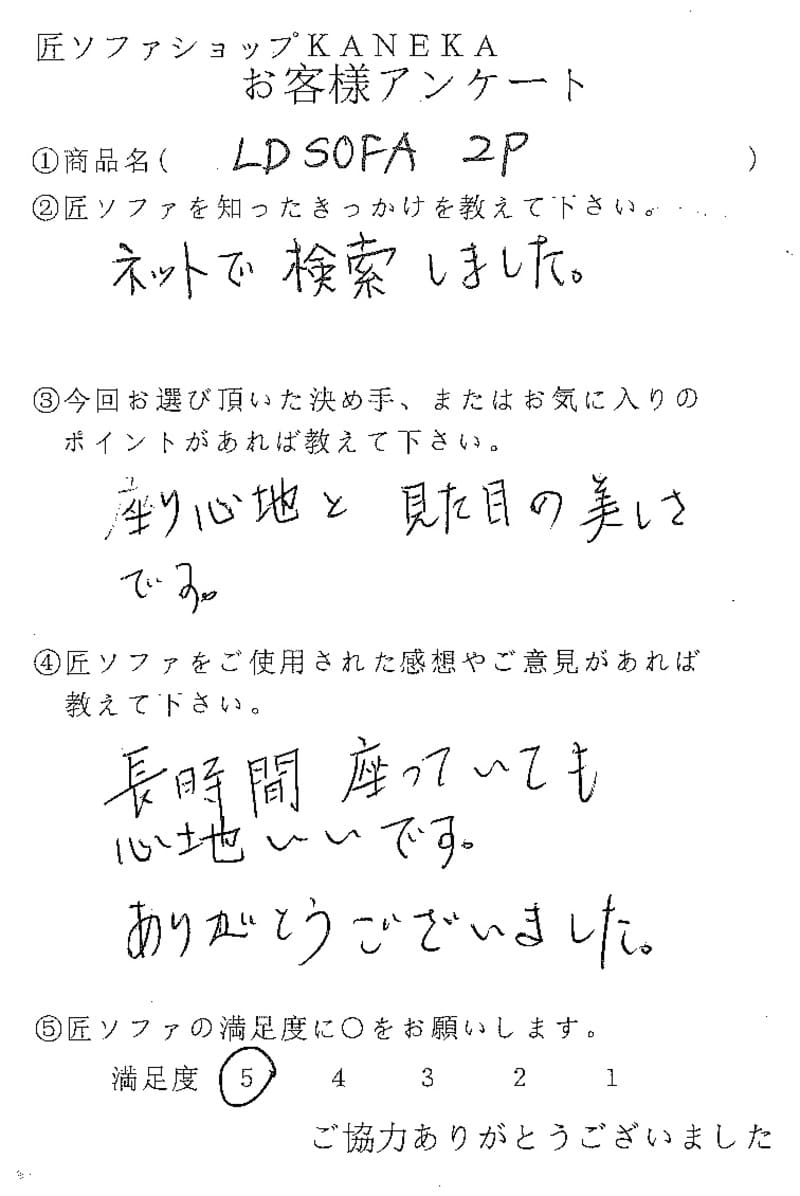 匠ソファショップKANEKA
お客様アンケート
①商品名( LD SOFA 2P )
②匠ソファを知ったきっかけを教えて下さい。
ネットで検索しました。
③今回お選び頂いた決め手、またはお気に入りの
ポイントがあれば教えて下さい。
座り心地と見た目の美しさ
です。
④匠ソファをご使用された感想やご意見があれば
教えて下さい。
長時間座っていても
心地いいです。
ありがとうございました。
⑤匠ソファの満足度に○をお願いします。
満足度 5 4 3 2 1
ご協力ありがとうございました